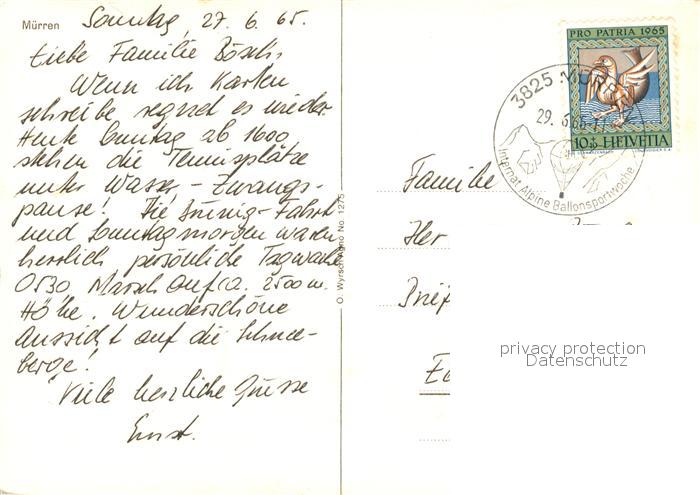 Mürren
Sonntag, 27. 6. 65.
Liebe Familie Bösch,
Wenn ich Karten
schreibe regnet es wieder.
Heute Sonntag ab 1600
stehen die Tennisplätze
unter Wasser, - Zwangs-
pause! Die Fahrt
und Sonntagmorgen waren
herrlich persönliche Tagwache
0530 Marsch auf ca. 2500 m.
Höhe. Wunderschöne
Aussicht auf die Schnee-
berge!
Viele herzliche Grüsse
Ernst.
O. Wyrsch Agno No. 1275
PRO PATRIA 1965
10+5 HELVETIA
3825 MÜRREN
29. 6. 65-11
Internat. Alpine Ballonsportwoche
Familie
Her
privacy protection
Datenschutz